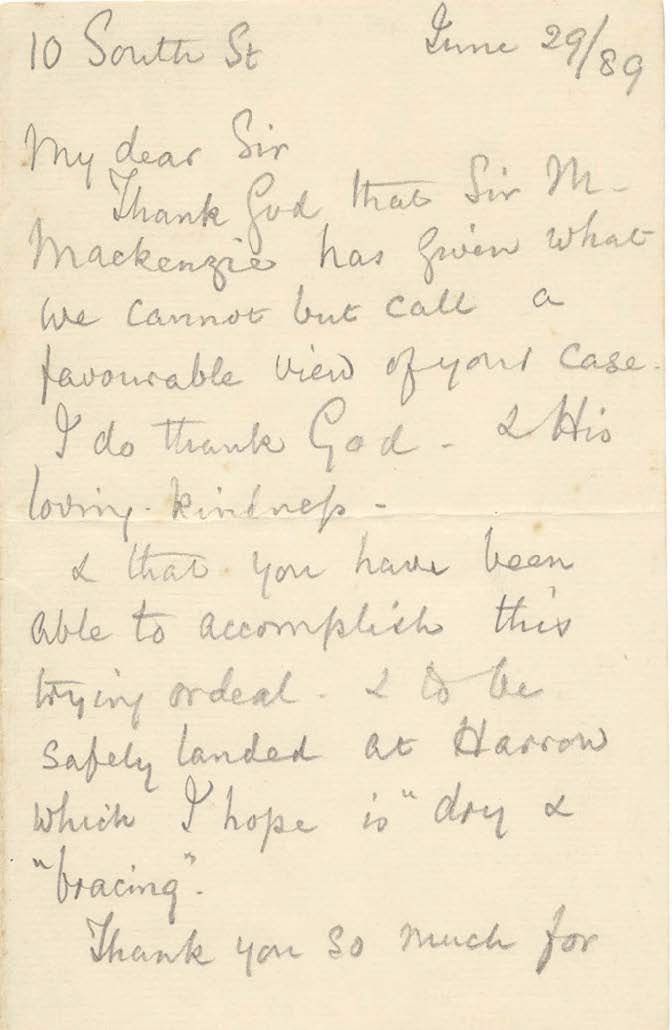 10 South St June 29/89
My dear Sir
Thank God that Sir M.
Mackenzie has given what
we cannot but call a
favourable view of your case.
I do thank God - & His
loving-kindness -
& that you have been
able to accomplish this
trying ordeal - & to be
safely landed at Harrow
which I hope is "dry &
"bracing".
Thank you so much for